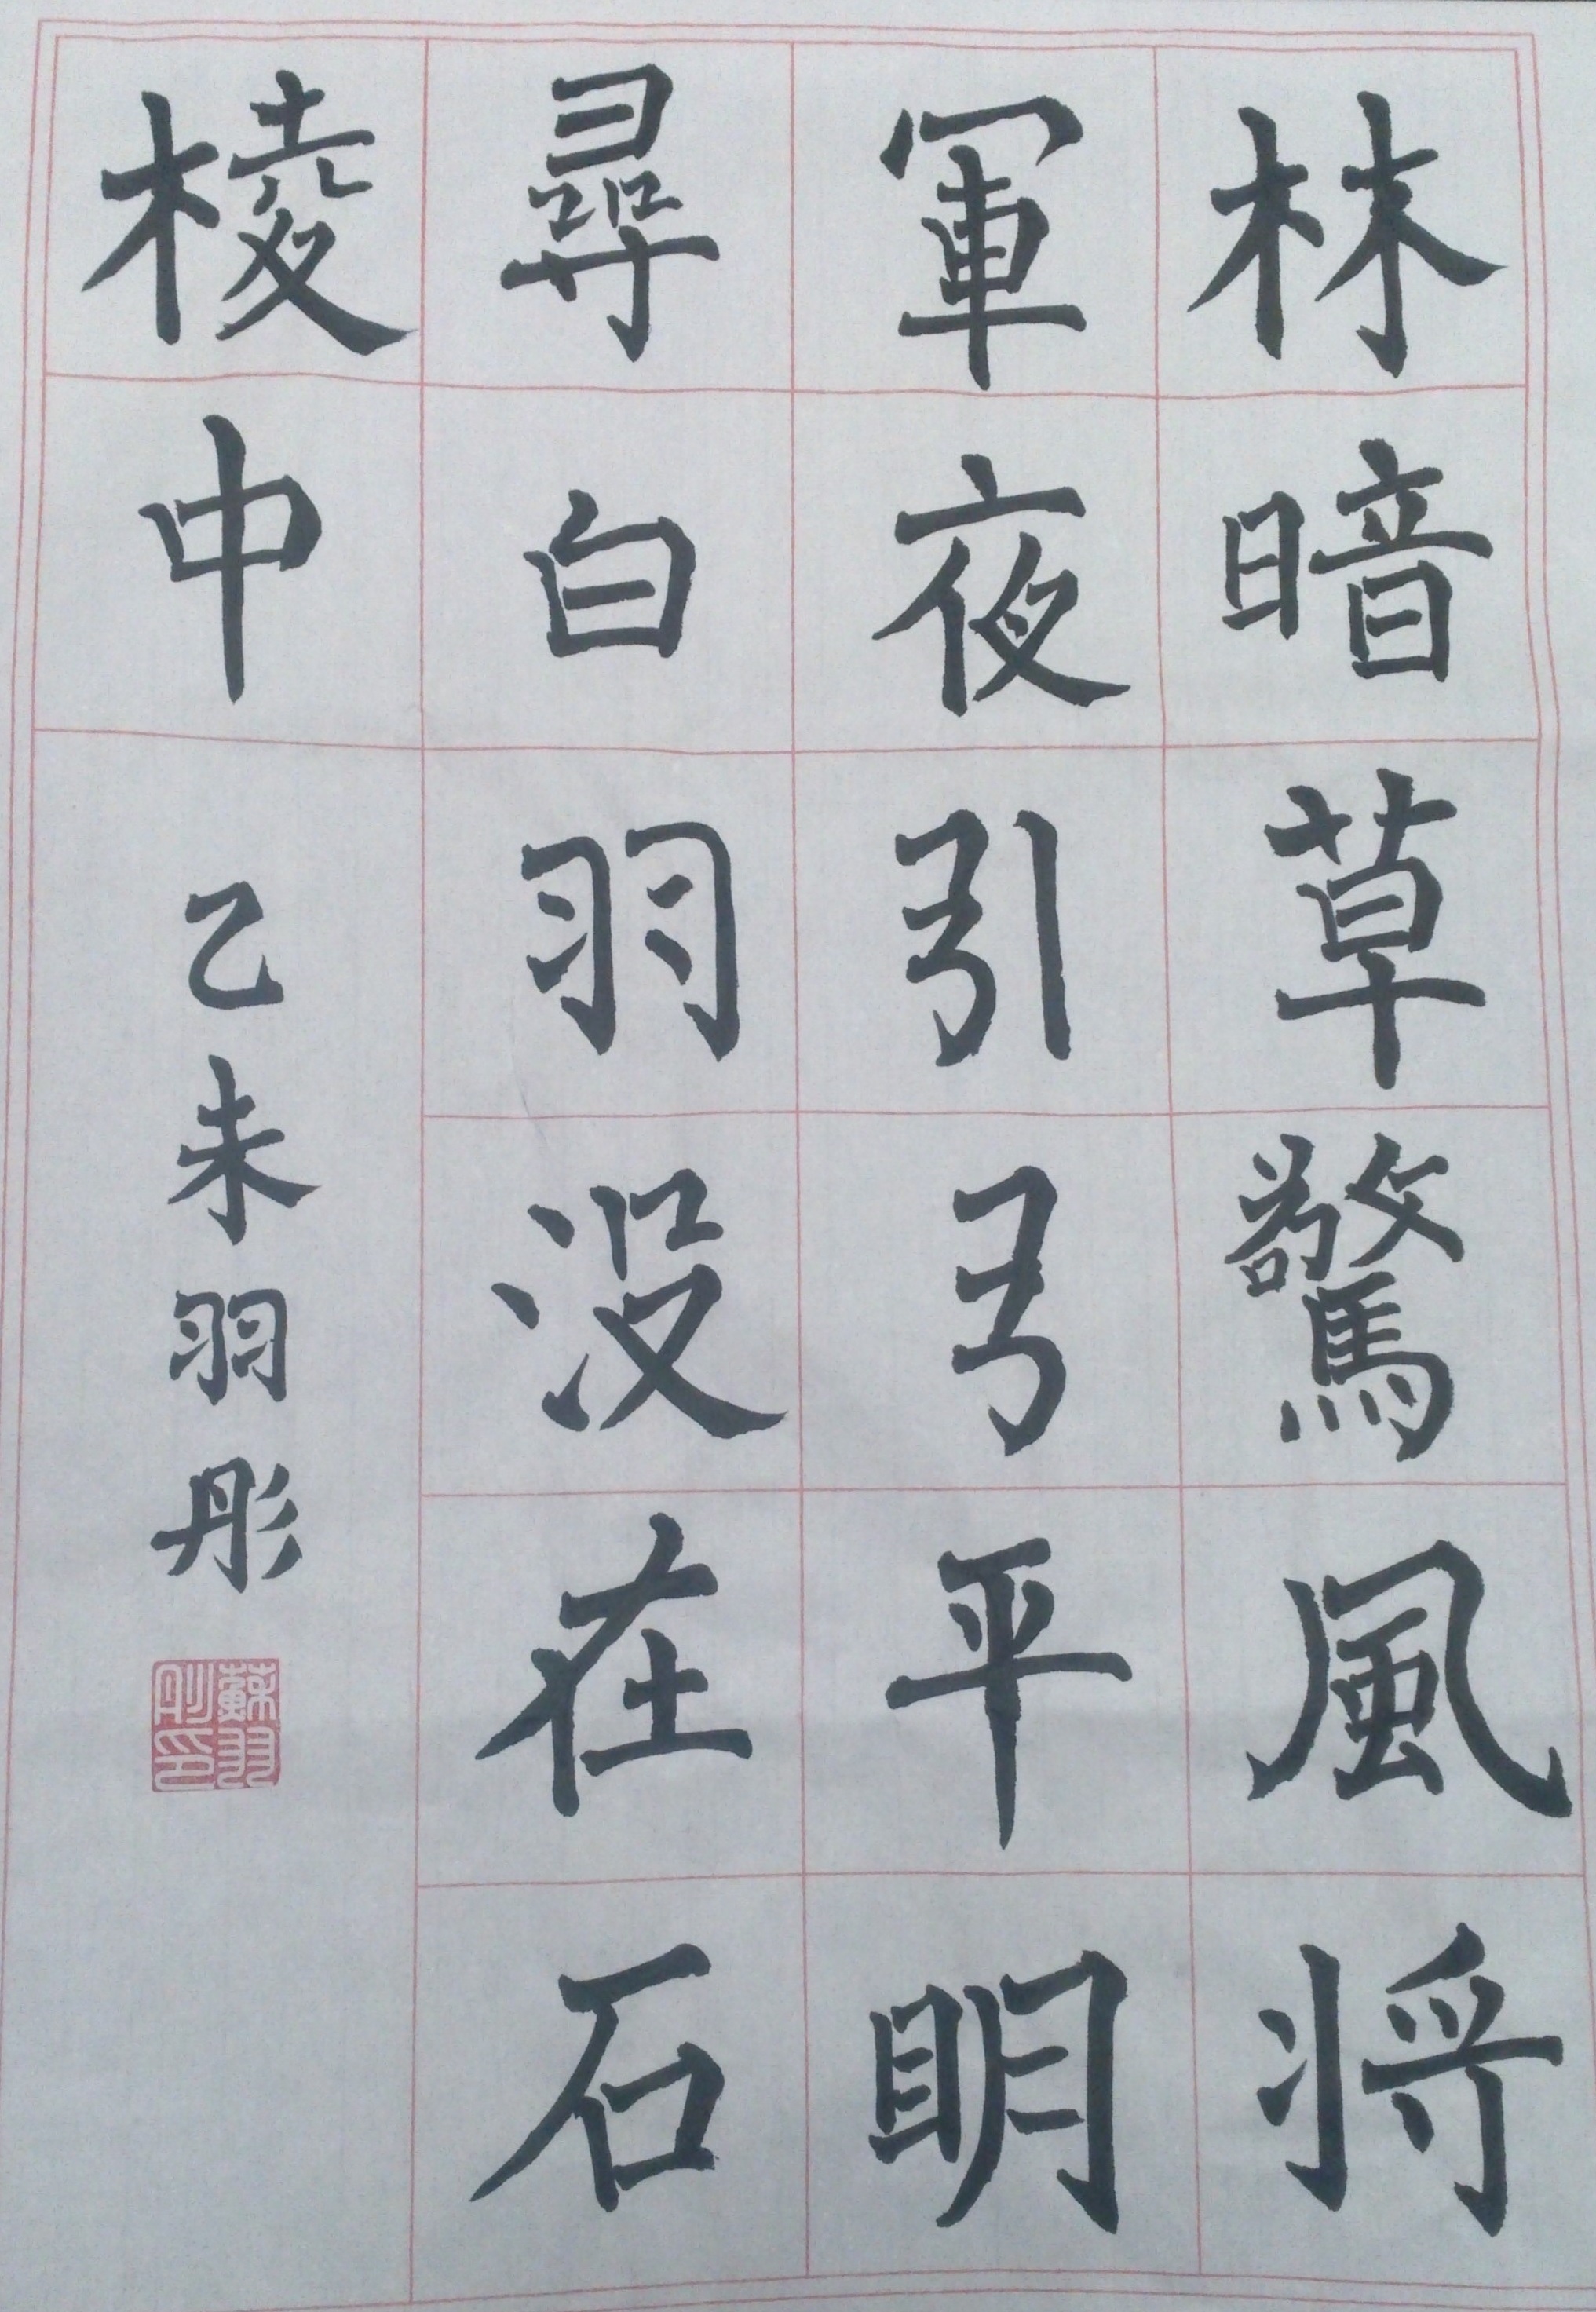 林暗草驚風将
軍夜引弓平明
尋白羽没在石
棱中
乙未羽彤
蘇羽
彤印